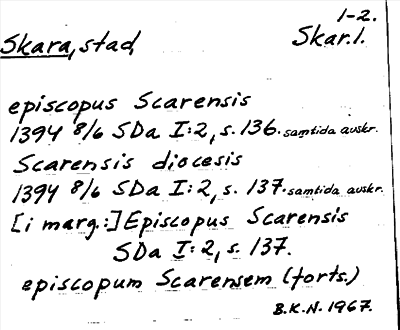 1-2.
Skara, stad, Skar.l.
episcopus Scarensis
1394 8/6 SDa I:2, s. 136. samtida avskr.
Scarensis diocesis
1394 8/6 SDa I:2, s. 137. samtida avskr.
[i marg.:] Episcopus Scarensis
SDa I:2, s. 137.
episcopum Scarensem (forts.)
B.K.N. 1967.